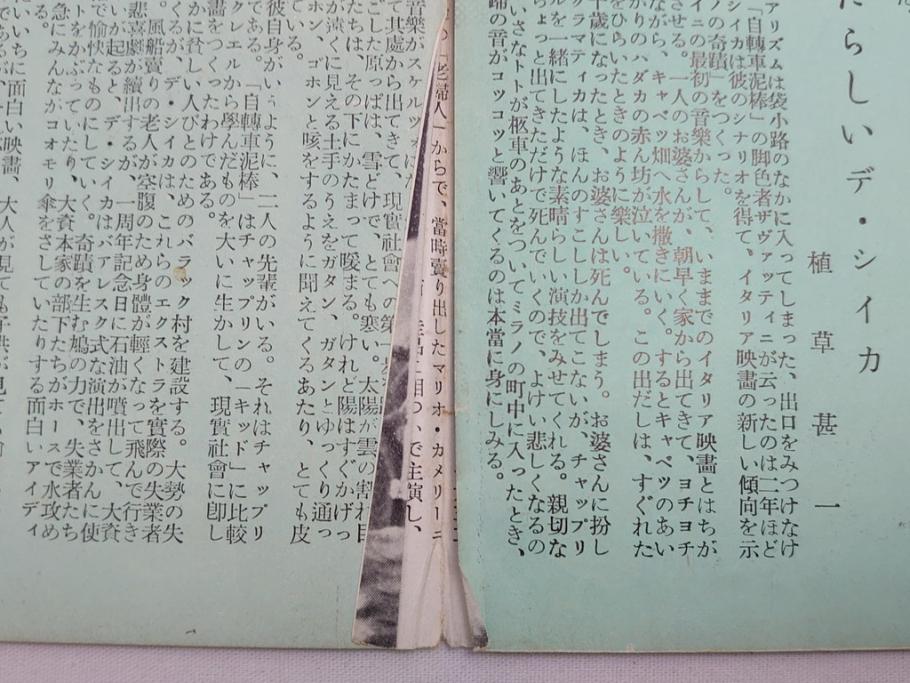 たらしいデ・シイカ
植草甚一
アリズムは袋小路のなかに入ってしまった、出口をみつけなけ
「自轉車泥棒」の脚色者ザヴァッティニが云ったのは二年ほど
シイカは彼のシナリオを得て、イタリア映畫の新しい傾向を示
ノの奇蹟」をつくった。
イニの最初の音樂からして、いままでのイタリア映畫とはちが
させる。一人のお婆さんが、朝早く家から出てきて、ヨチヨチ
ながら、キャベツ畑へ水を撒きにいく。するとキャベツのあい
かりのハダカの赤ん坊が泣いている。この出だしは、すぐれた
をひらいたときのように樂しい。
十歳になったとき、お婆さんは死んでしまう。お婆さんに扮し
グラマティカは、ほんのすこししか出てこないが、チャップリ
ルを一緒にしたような素晴らしい演技をみせてくれる。親切な
ちょっと出てきただけで死んでいくので、よけい悲しくなるの
いさなトトが柩車のあとをついてミラノの町中に入ったとき、
蹄の音がコツコツと響いてくるのは本當に身にしみる。
の「老婦人」からで、當時賣り出したマリオ・カメリーニ
で主演し、
音樂がスケルツォに
て其處から出てきて、現實社會への第一
ごした原っぱは、雪どけで、とても寒い。太陽が雲の割れ目
たちは、その下にかたまって暖まる。けれど陽はすぐかげっ
が遠くに見える土手のうえをガタン、ガタンとゆっくり通っ
ホン、ゴホンと咳をするように聞えてくるあたり、とても皮
ている。
彼自身がいうように、二人の先輩がいる。それはチャップリ
クレエルだ。「自轉車泥棒」はチャップリンの「キッド」に比較
クレエルから學んだものを大いに生かして、現實社會に卽し
レエをつくったわけである。
かに貧しい人びとのためのバラック村を建設する。大勢の失
くるが、デ・シイカは、これらのエクストラを實際の失業者
風船賣りの老人が空腹のため身體が輕くなって飛んで行き
悲喜劇が續出するが、一周年記念日に石油が噴出して、大資
いが起ると、デ・シイカはバアレスク式な演出をさかんに使
で愉快なものにしていく。奇蹟を生む鳩の力で、失業者たち
トをかぶっていたり、大資本家の部下たちがホースで水攻め
急にみんながコオモリ傘をさしていたりする面白いアイディ